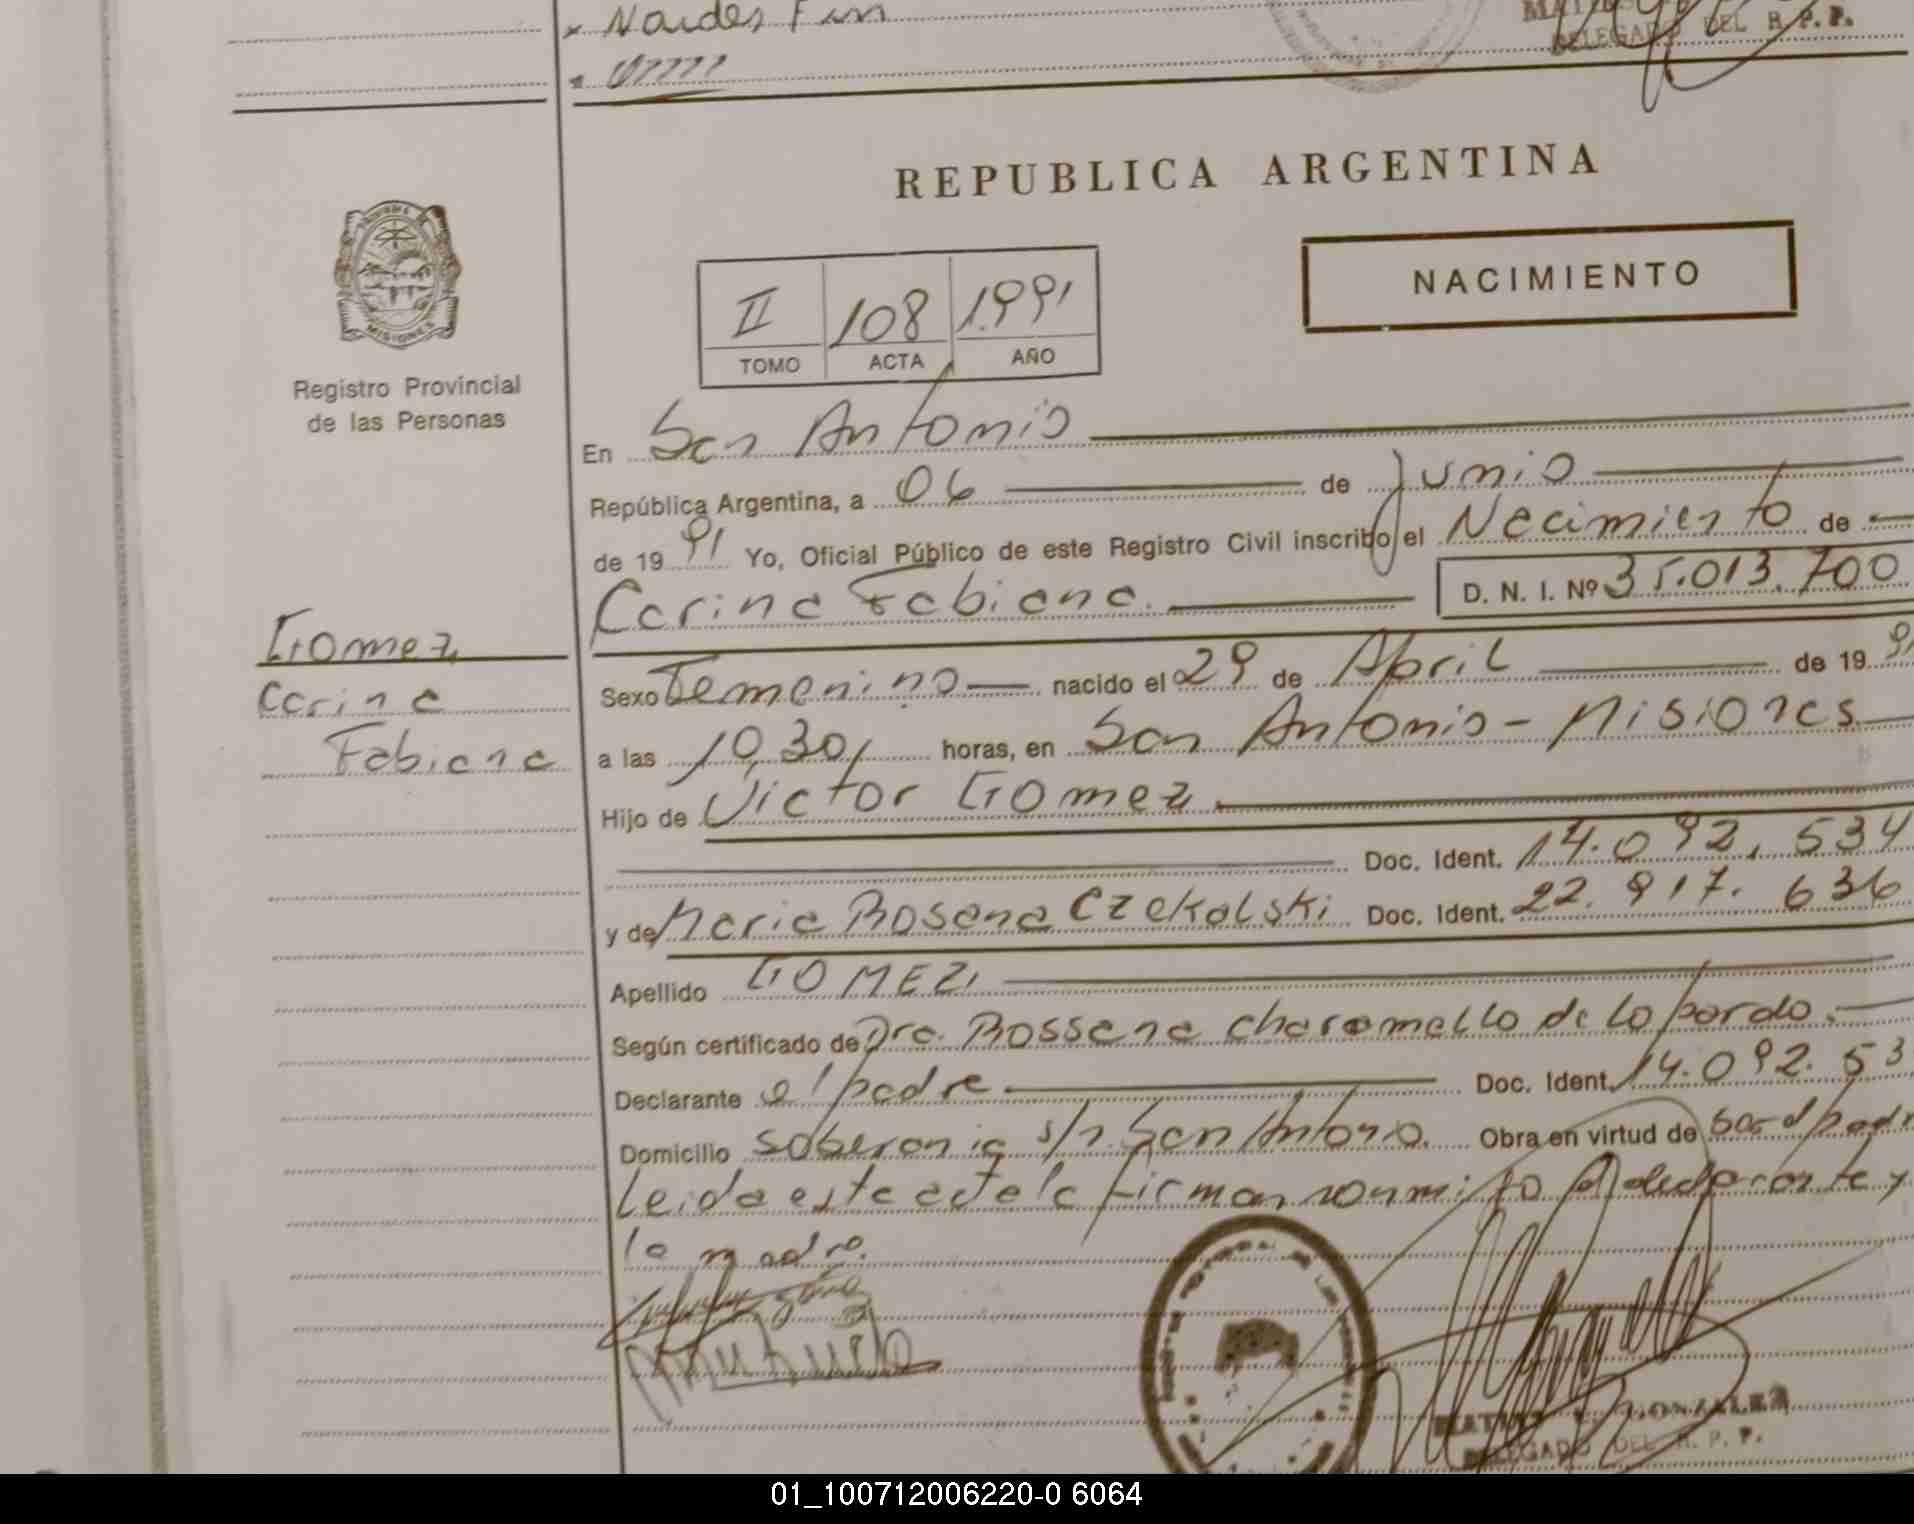 Naides Fem
MATIAS
DELEGADO DEL R. P. P.
REPUBLICA ARGENTINA
NACIMIENTO
MISIONES
Registro Provincial
de las Personas
II 108 1.991
TOMO ACTA AÑO
En San Antonio
República Argentina, a 06 de Junio
de 1991 Yo, Oficial Público de este Registro Civil inscribo el Nacimiento de
Carina Fabiana. D. N. I. Nº 35.013.700
Gomez
Carina
Fabiana
Sexo Femenino nacido el 29 de Abril de 199
a las 10,30 horas, en San Antonio - Misiones
Hijo de Victor Gomez
Doc. Ident. 14.092.534
y de Maria Rosana Czekalski Doc. Ident. 22.917.636
Apellido GOMEZ
Según certificado de Dra. Rossana Charamello de Lopardo.
Declarante el padre Doc. Ident. 14.092.53
Domicilio soberania s/n. San Antonio. Obra en virtud de ser el padr
Leida este acta la firman conmigo el declarante y
la madre.
MATIAS GONZALEZ
DELEGADO DEL R. P. P.
01_100712006220-0 6064